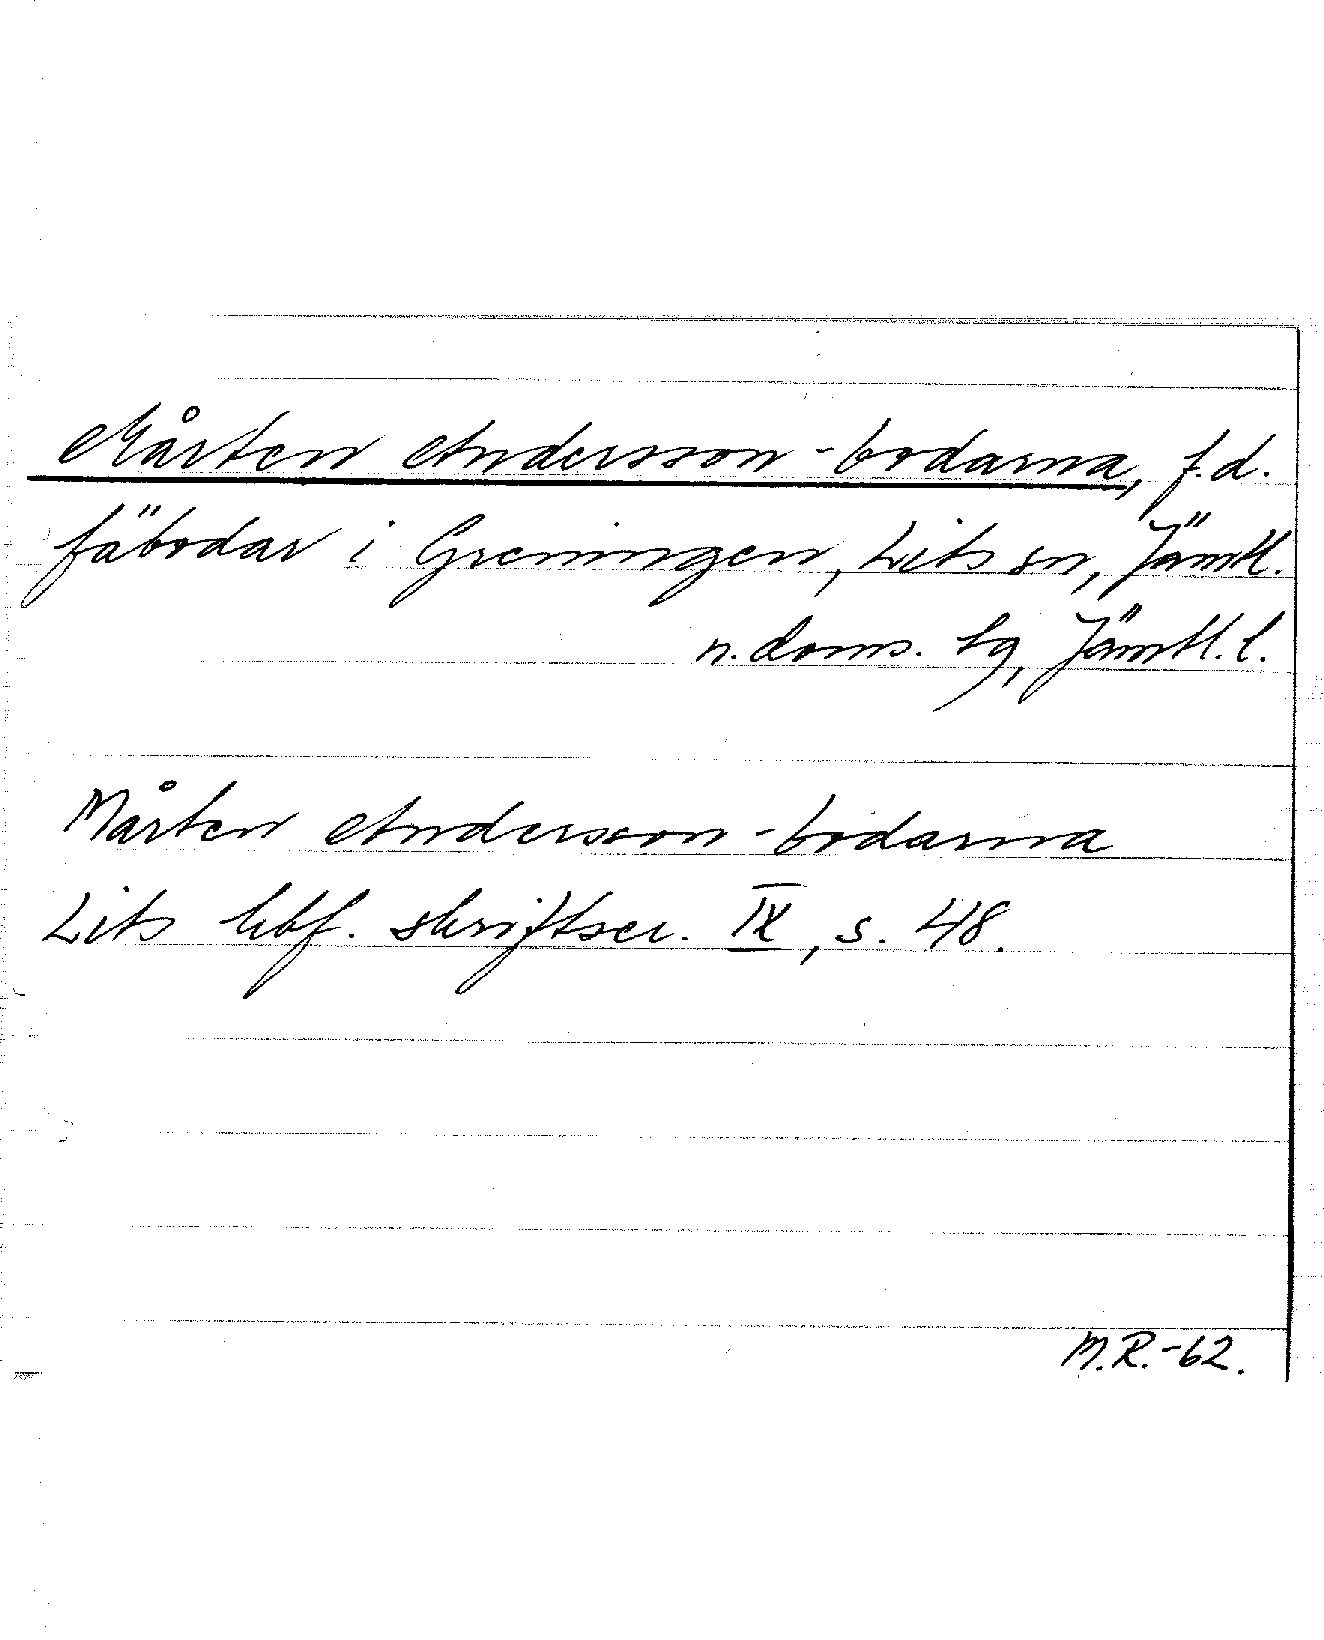 Mårten Andersson-bodarna, f.d.
fäbodar i Greningen, Lits sn, Jämtl.
n. doms. tg, Jämtl. l.
Mårten Andersson-bodarna
Lits hbf. skriftser. IX, s. 48.
M.R.-62.